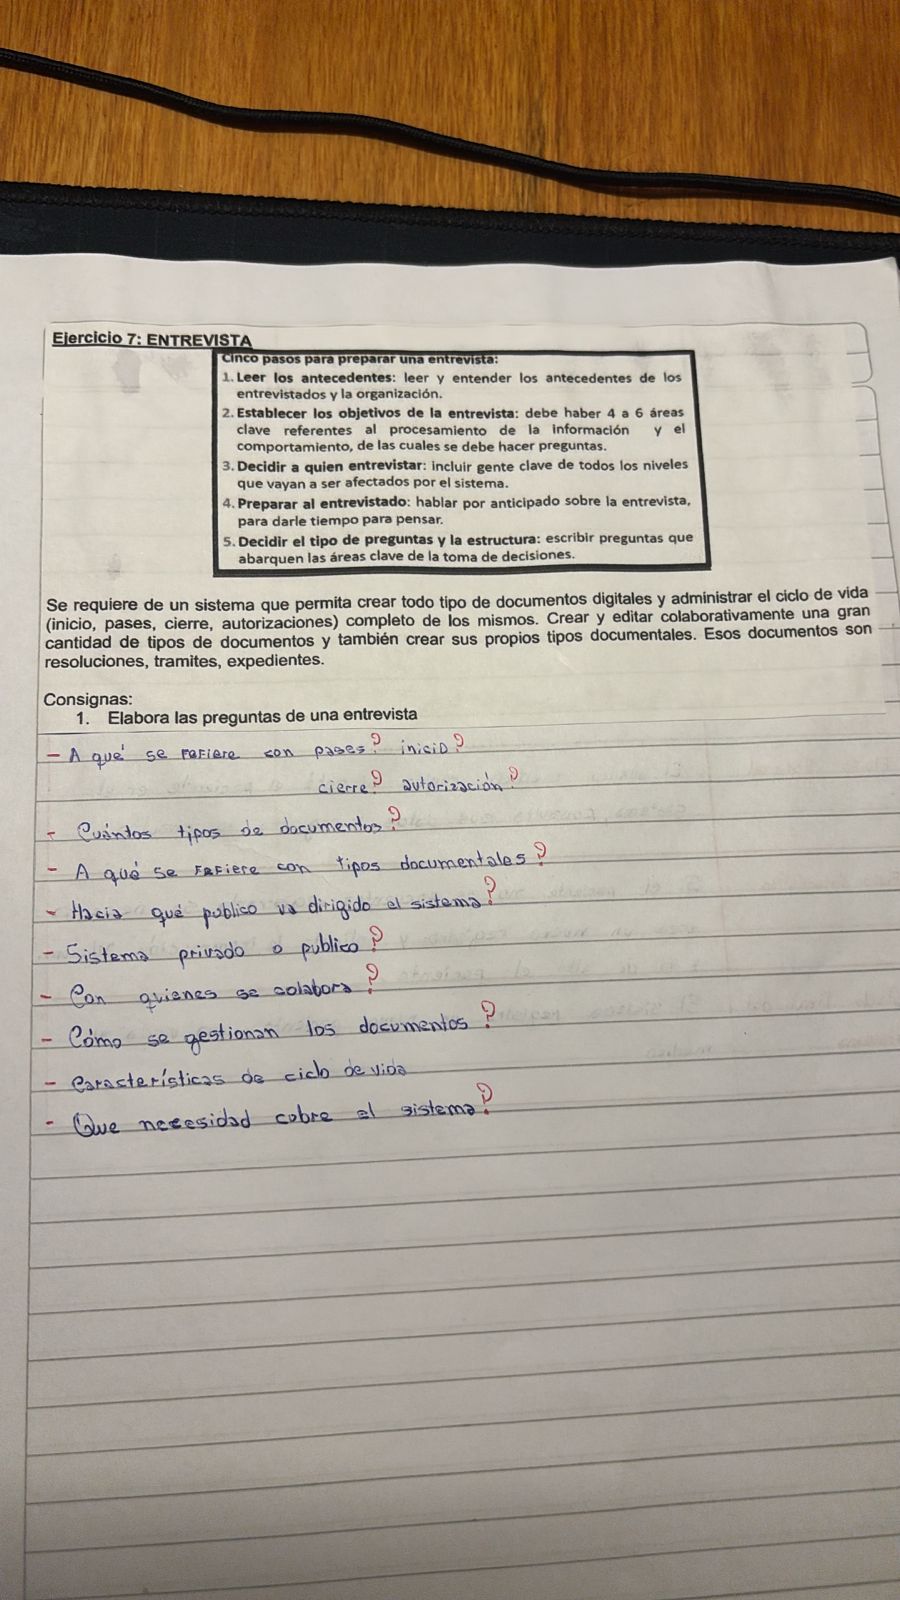 Ejercicio 7: ENTREVISTA
Cinco pasos para preparar una entrevista:
1. Leer los antecedentes: leer y entender los antecedentes de los
entrevistados y la organización.
2. Establecer los objetivos de la entrevista: debe haber 4 a 6 áreas
clave referentes al procesamiento de la información y el
comportamiento, de las cuales se debe hacer preguntas.
3. Decidir a quien entrevistar: incluir gente clave de todos los niveles
que vayan a ser afectados por el sistema.
4. Preparar al entrevistado: hablar por anticipado sobre la entrevista,
para darle tiempo para pensar.
5. Decidir el tipo de preguntas y la estructura: escribir preguntas que
abarquen las áreas clave de la toma de decisiones.
Se requiere de un sistema que permita crear todo tipo de documentos digitales y administrar el ciclo de vida
(inicio, pases, cierre, autorizaciones) completo de los mismos. Crear y editar colaborativamente una gran
cantidad de tipos de documentos y también crear sus propios tipos documentales. Esos documentos son
resoluciones, tramites, expedientes.
Consignas:
1. Elabora las preguntas de una entrevista
- A qué se refiere con pases? inicio?
cierre? autorización?
- Cuántos tipos de documentos?
- A qué se refiere con tipos documentales?
- Hacia qué publico va dirigido el sistema?
- Sistema privado o publico?
- Con quienes se colabora?
- Cómo se gestionan los documentos?
- Características de ciclo de vida
- Que necesidad cubre el sistema?